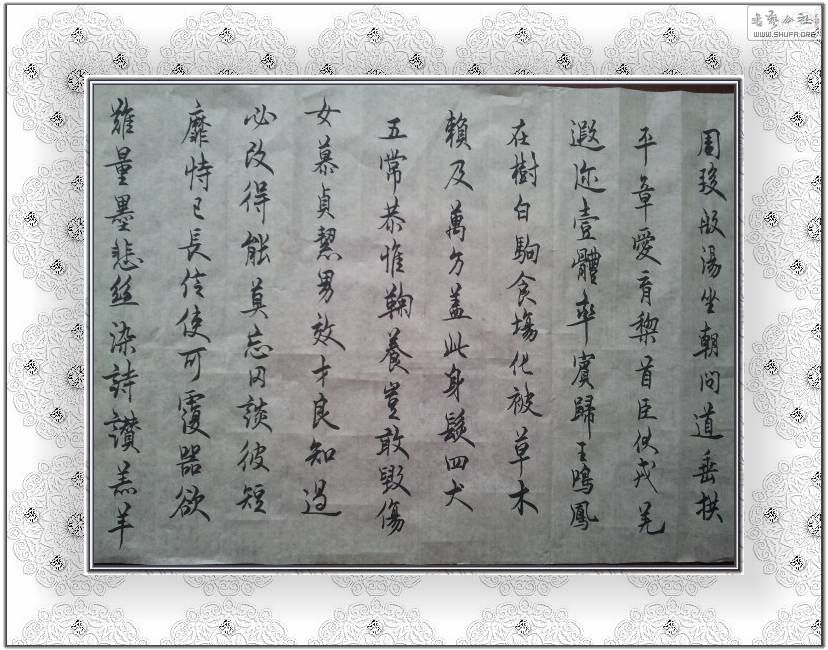 周發殷湯坐朝問道垂拱
平章愛育黎首臣伏戎羌
遐迩壹體率賓歸王鳴鳳
在樹白駒食場化被草木
賴及萬方盖此身髮四大
五常恭惟鞠養豈敢毀傷
女慕貞絜男效才良知過
必改得能莫忘罔談彼短
靡恃己長信使可覆器欲
難量墨悲絲染詩讃羔羊
書藝公社
WWW.SHUFA.ORG